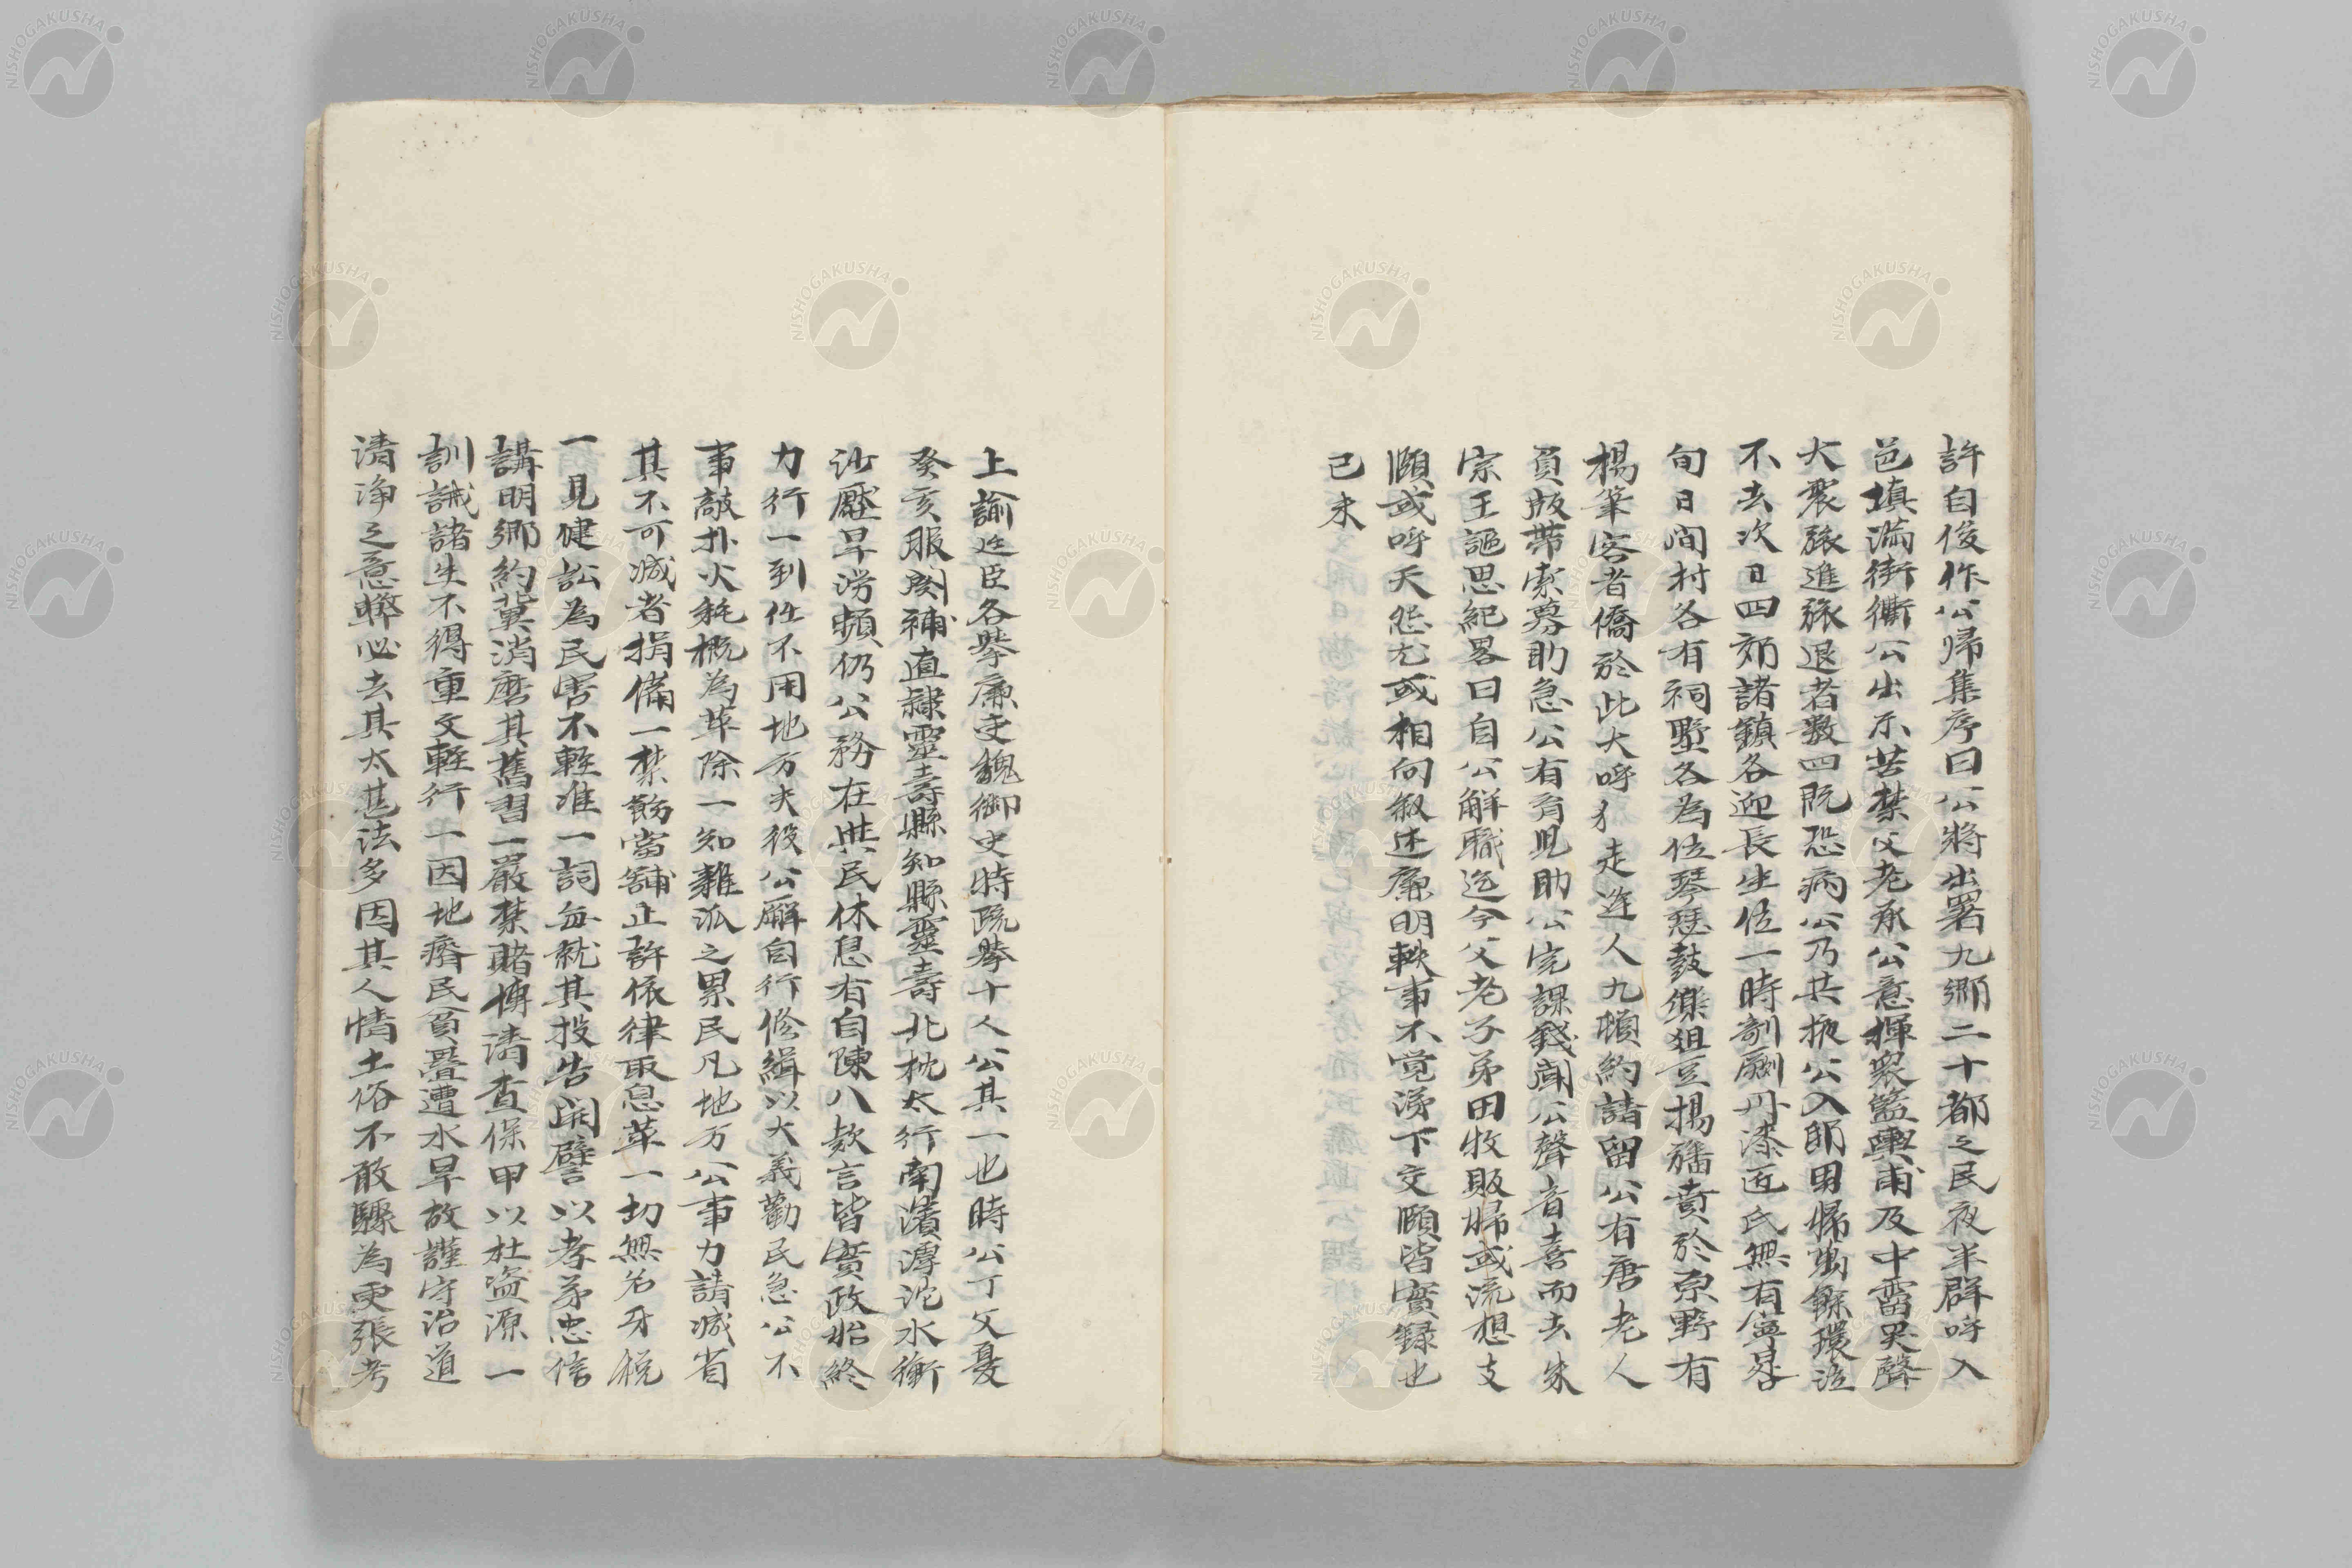 許自俊作公帰集序曰公將出署九郷二十都之民夜半群呼入
邑填満街衢公出示苦禁父老承公意揮衆籃輿甫及中霤哭聲
大衆旅進旅退者數四既恐病公乃共掖公入即男婦萬餘環泣
不去次日四郊諸鎮各迎長生位一時剞劂丹漆匠氏無有寧晷
旬日间村各有祠墅各為位琴瑟鼓樂俎豆揚旛賁於原野有
楊筆客者僑於此大呼犭走逢人九頓約請留公有唐老人
負版帶索募助急公有肩見助公完課錢闻公聲音喜而去朱
宗王謳思紀畧曰自公解職迄今父老子弟田牧販婦或流想支
頤或呼天怨尤或相向叙述廉明軼事不覚涕下交頤皆實録也
己未
上諭廷臣各挙廉吏魏御史時疏挙十人公其一也時公丁父憂
癸亥服闋補直隷靈壽縣知縣靈壽北枕太行南濱滹沱水衝
沙壓旱澇頻仍公務在與民休息有自陳八款言皆實政始終
力行一到任不用地方夫役公廨自行修緝以大義勸民急公不
事敲扑火耗概為革除一知雜派之累民凡地方公事力請減省
其不可減者捐備一禁飭當舗止許依律取息革一切無名牙税
一見健訟為民害不輕准一詞每就其投告開譬以孝弟忠信
講明郷約冀消磨其舊習一嚴禁賭博清査保甲以杜盗源一
訓誡諸生不得重文輕行一因地瘠民貧疊遭水旱故謹守治道
清浄之意弊必去其太甚法多因其人情土俗不敢驟為更張考